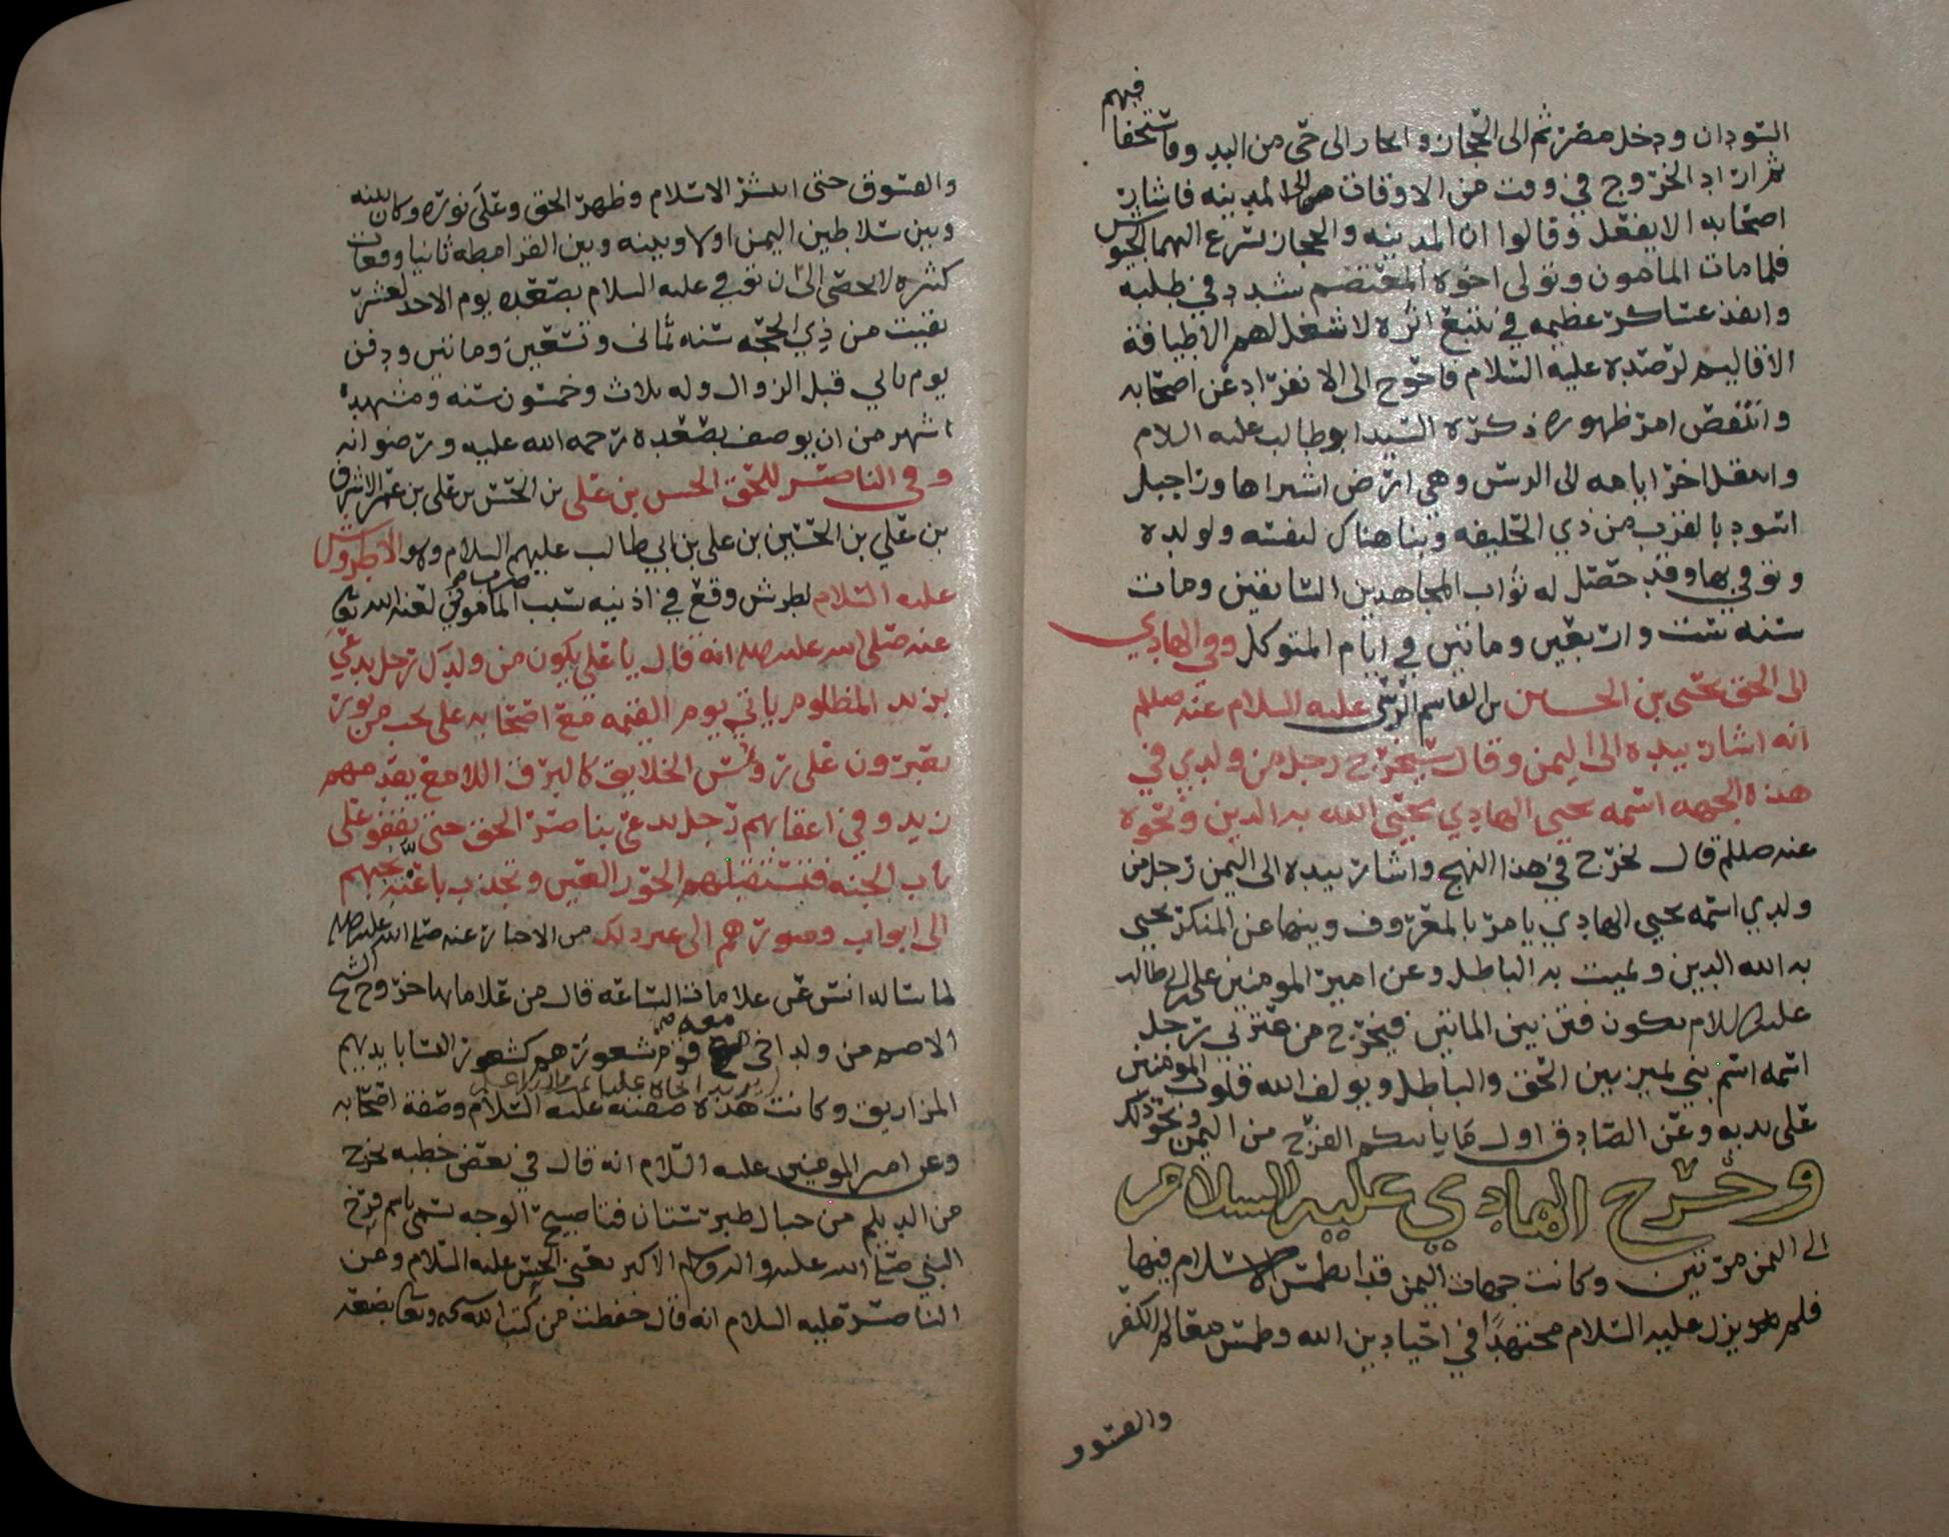 فيهم
السودان ودخل مصر ثم الى الحجاز وانحاز الى حي من البدو مستخفا
ثم اراد الخروج في وقت من الاوقات من المدينه فاشار
اصحابه الا يفعل وقالوا ان المدينه والحجاز تسرع اليهما الجيوش
فلما مات المامون وتولى اخوه المعتصم شدد في طلبه
وانفذ عساكر عظيمه في تتبع اثره لا شغل لهم الا طيافة
الاقاليم لرصده عليه السلام فاحوج الى الانفراد عن اصحابه
وانتقض امر ظهوره ذكره السيد ابو طالب عليه السلام
وانتقل اخر ايامه الى الرس وهي ارض اشتراها ورا جبل
اسود بالقرب من ذي الحليفه وبنا هناك لنفسه ولولده
وتوفي بها وقد حصل له ثواب المجاهدين السابقين ومات
سنه ست واربعين وماتين في ايام المتوكل وفي الهادي
الى الحق يحيى بن الحسين بن القاسم الرسي عليه السلام عنه صللم
انه اشار بيده الى اليمن وقال سيخرج رجل من ولدي في
هذه الجهه اسمه يحيى الهادي يحيى الله به الدين ونحوه
عنه صللم قال يخرج في هذا النهج واشار بيده الى اليمن رجل من
ولدي اسمه يحيى الهادي يامر بالمعروف وينها عن المنكر يحيى
به الله الدين ويميت به الباطل وعن امير المومنين علي بن ابي طالب
عليه السلام تكون فتن بين الماتين فيخرج من عترتي رجل
اسمه اسم نبي يميز بين الحق والباطل ويولف الله قلوب المومنين
على يديه وعن الصادق اول ما ياتيكم الفرج من اليمن ونحو ذلك
وخرج الهادي عليه السلام
الى اليمن مرتين وكانت جهات اليمن قد انطمس الاسلام فيها
فلم يزل عليه السلام مجتهدا في احيا دين الله وطمس معالم الكفر
والفسوق
والفسوق حتى انتشر الاسلام وظهر الحق وعلى نوره وكان بينه
وبين سلاطين اليمن اولا وبينه وبين القرامطه ثانيا وقعات
كثيره لا تحصى الى ان توفي عليه السلام بصعده يوم الاحد لعشر
بقيت من ذي الحجه سنه ثماني وتسعين وماتين ودفن
يوم ثاني قبل الزوال وله ثلاث وخمسون سنه ومشهده
اشهر من ان يوصف بصعده رحمه الله عليه ورضوانه
وفي الناصر للحق الحسن بن علي بن الحسن بن علي بن عمر الاشرف
بن علي بن الحسين بن علي بن ابي طالب عليهم السلام وهو الاطروش
عليه السلام لطرش وقع في اذنيه بسبب المامون لعنه الله تعا
عنه صلى الله عليه انه قال يا علي يكون من ولدك رجل يدعى
بزيد المظلوم ياتي يوم القيمه مع اصحابه على نجب من نور
يعبرون على رووس الخلايق كالبرق اللامع يقدمهم
زيد وفي اعقابهم رجل يدعى بناصر الحق حتى يقفو على
باب الجنه فتستقبلهم الحور العين وتجذب باعنه نجبهم
الى ابواب وصورهم الى غير ذلك من الاخبار عنه صلى الله عليه
لما ساله انس عن علامات الساعه قال من علاماتها خروج الشيخ
الاصم من ولد اخي معه قوم شعورهم كشعور النسا بايديهم
المزاريق وكانت هذه صفته عليه السلام وصفة اصحابه
وعن امير المومنين عليه السلام انه قال في بعض خطبه يخرج
من الديلم من جبال طبرستان فتا صبيح الوجه يسمى باسم فرخ
النبي صلى الله عليه واله وسلم الاكبر يعني الحسن عليه السلام وعن
الناصر عليه السلام انه قال حفظت من كتب الله سبحانه وتعالى بضعه